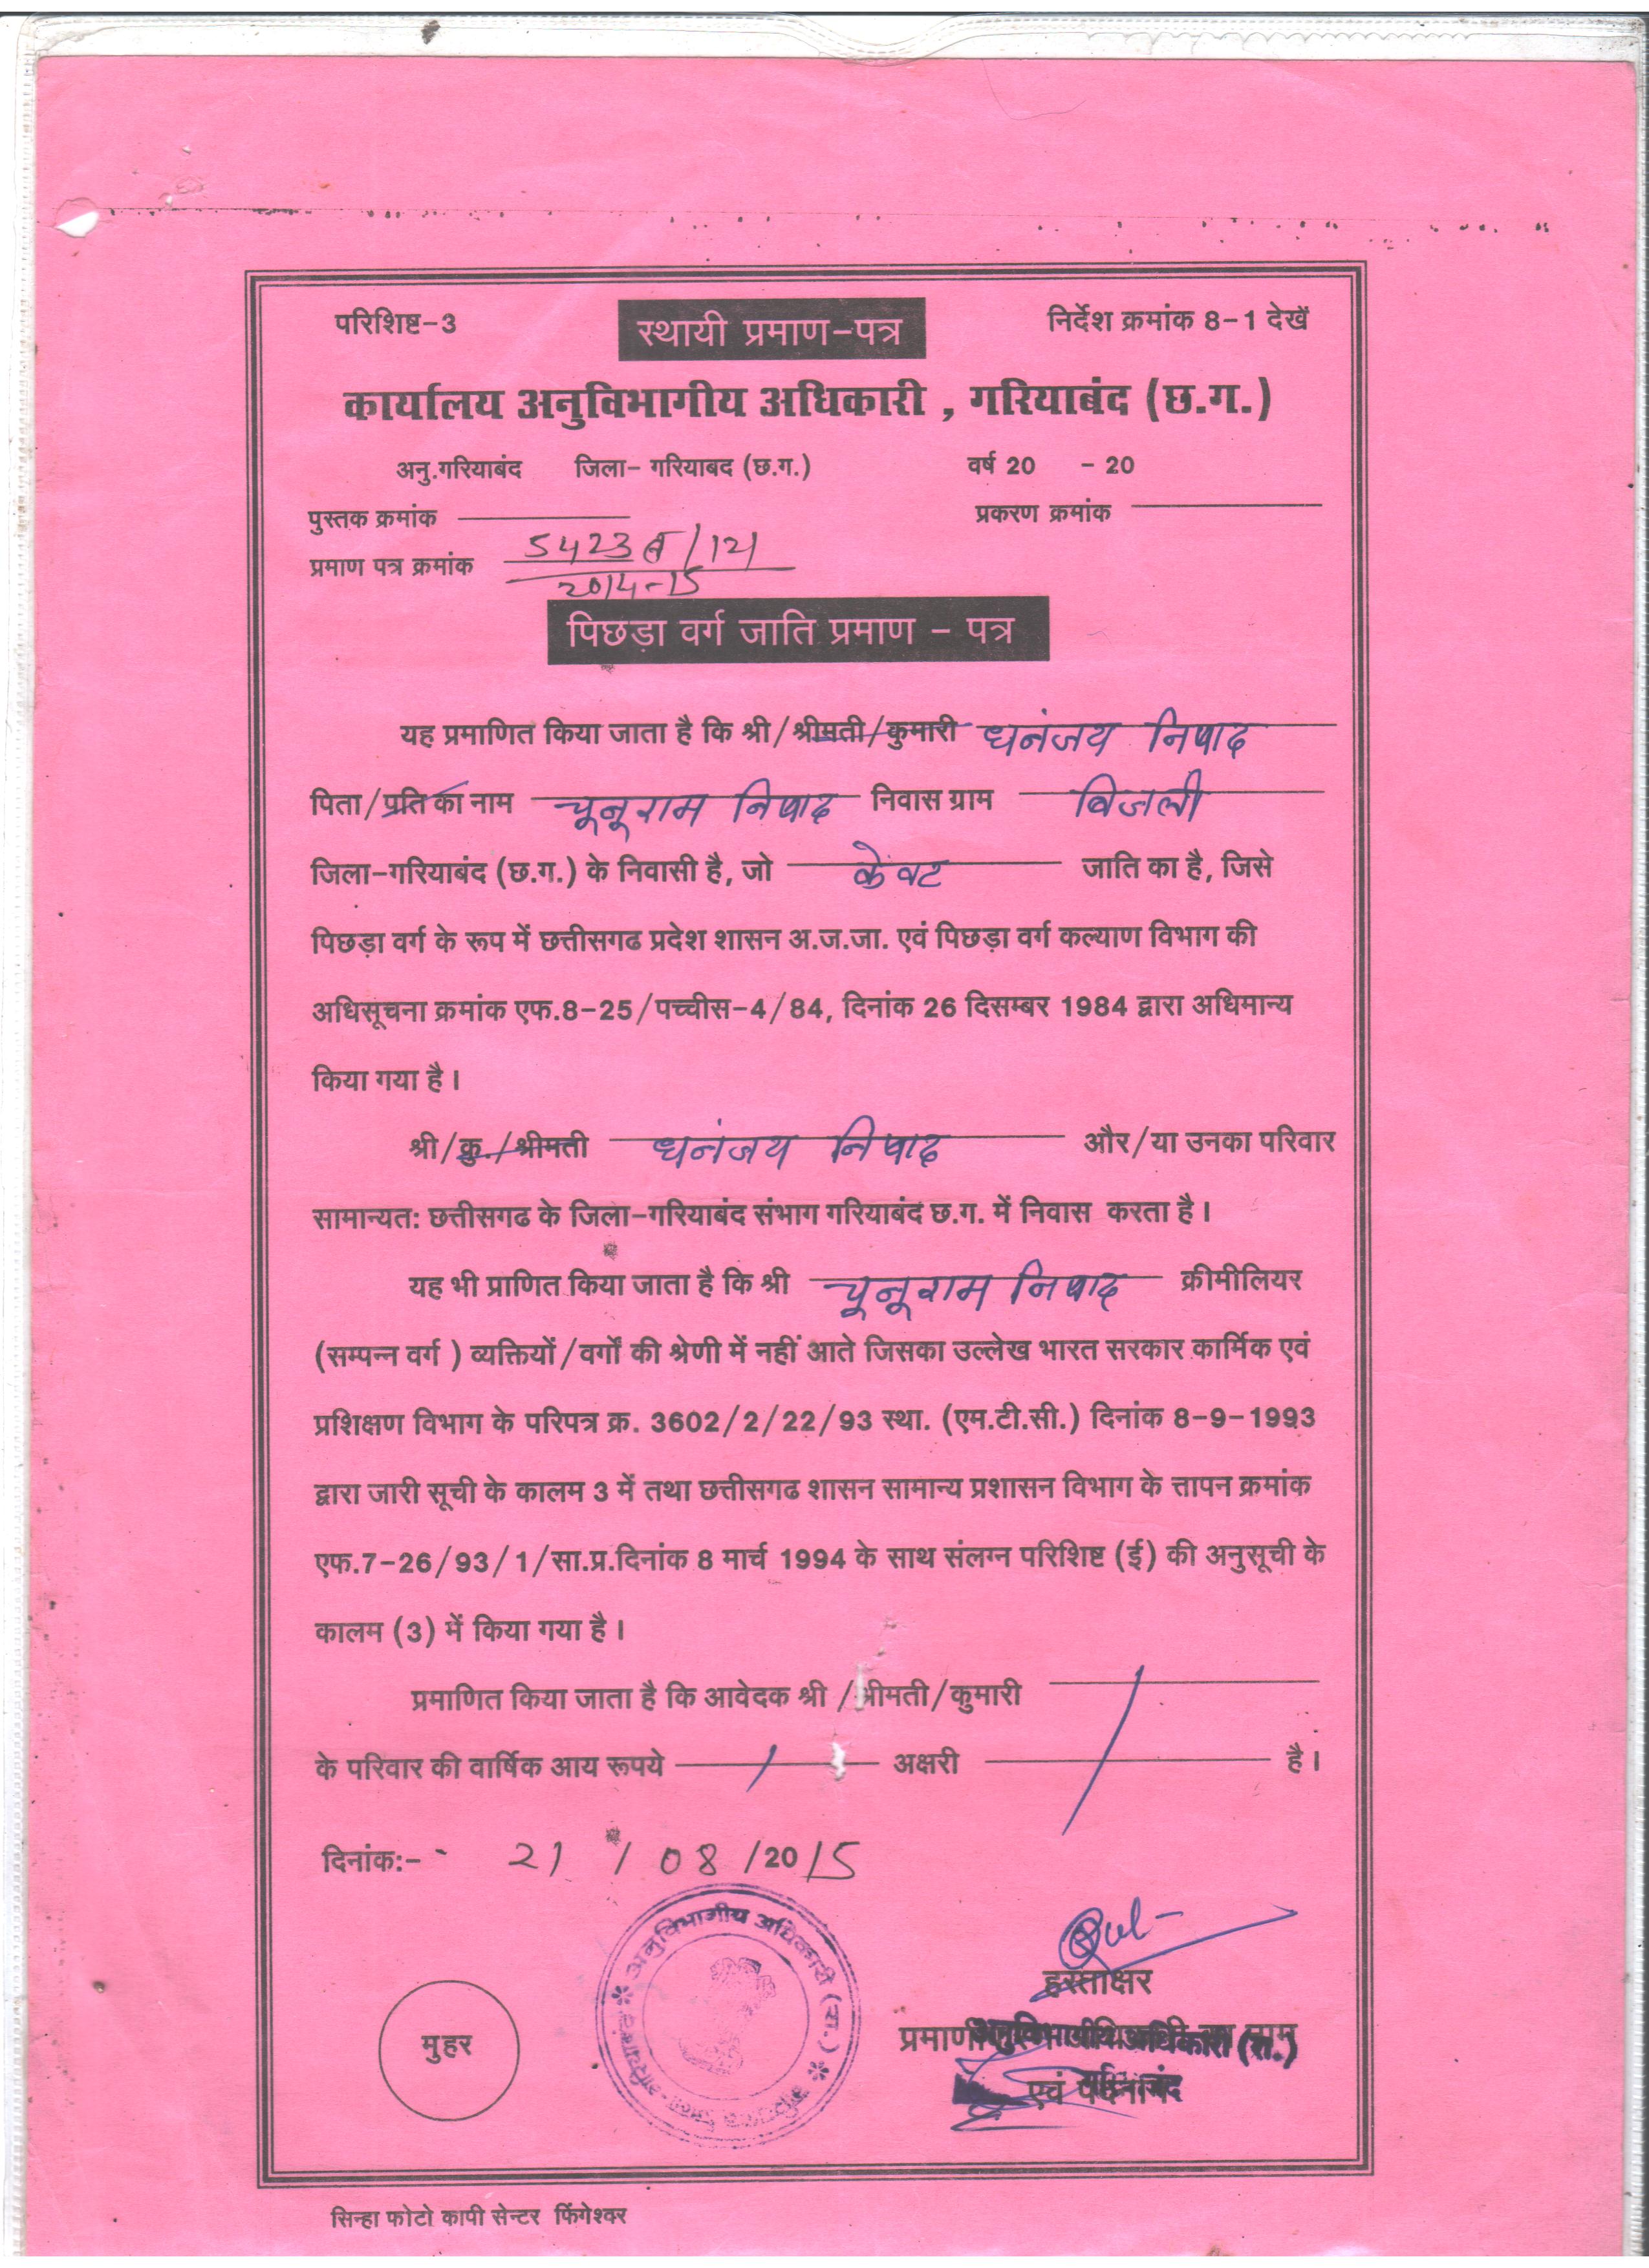 परिशिष्ट-3
स्थायी प्रमाण-पत्र
निर्देश क्रमांक 8-1 देखें
कार्यालय अनुविभागीय अधिकारी , गरियाबंद (छ.ग.)
अनु.गरियाबंद जिला- गरियाबद (छ.ग.) वर्ष 20 - 20
पुस्तक क्रमांक प्रकरण क्रमांक
प्रमाण पत्र क्रमांक 5423 /121
2014-15
पिछड़ा वर्ग जाति प्रमाण - पत्र
यह प्रमाणित किया जाता है कि श्री/श्रीमती/कुमारी धनंजय निषाद
पिता/प्रति का नाम चूनूराम निषाद निवास ग्राम बिजली
जिला-गरियाबंद (छ.ग.) के निवासी है, जो केवट जाति का है, जिसे
पिछड़ा वर्ग के रूप में छत्तीसगढ प्रदेश शासन अ.ज.जा. एवं पिछड़ा वर्ग कल्याण विभाग की
अधिसूचना क्रमांक एफ.8-25/पच्चीस-4/84, दिनांक 26 दिसम्बर 1984 द्वारा अधिमान्य
किया गया है।
श्री/कु./श्रीमती धनंजय निषाद और/या उनका परिवार
सामान्यत: छत्तीसगढ के जिला-गरियाबंद संभाग गरियाबंद छ.ग. में निवास करता है।
यह भी प्राणित किया जाता है कि श्री चूनूराम निषाद क्रीमीलियर
(सम्पन्न वर्ग ) व्यक्तियों/वर्गों की श्रेणी में नहीं आते जिसका उल्लेख भारत सरकार कार्मिक एवं
प्रशिक्षण विभाग के परिपत्र क्र. 3602/2/22/93 स्था. (एम.टी.सी.) दिनांक 8-9-1993
द्वारा जारी सूची के कालम 3 में तथा छत्तीसगढ शासन सामान्य प्रशासन विभाग के त्तापन क्रमांक
एफ.7-26/93/1/सा.प्र.दिनांक 8 मार्च 1994 के साथ संलग्न परिशिष्ट (ई) की अनुसूची के
कालम (3) में किया गया है।
प्रमाणित किया जाता है कि आवेदक श्री /श्रीमती/कुमारी
के परिवार की वार्षिक आय रूपये / अक्षरी / है।
दिनांक:- 21 / 08 /2015
अनुविभागीय अधिकारी (रा.)
हस्ताक्षर
मुहर
अनुविभागीय अधिकारी (रा.)
एवं पदनाम
सिन्हा फोटो कापी सेन्टर फिंगेश्वर